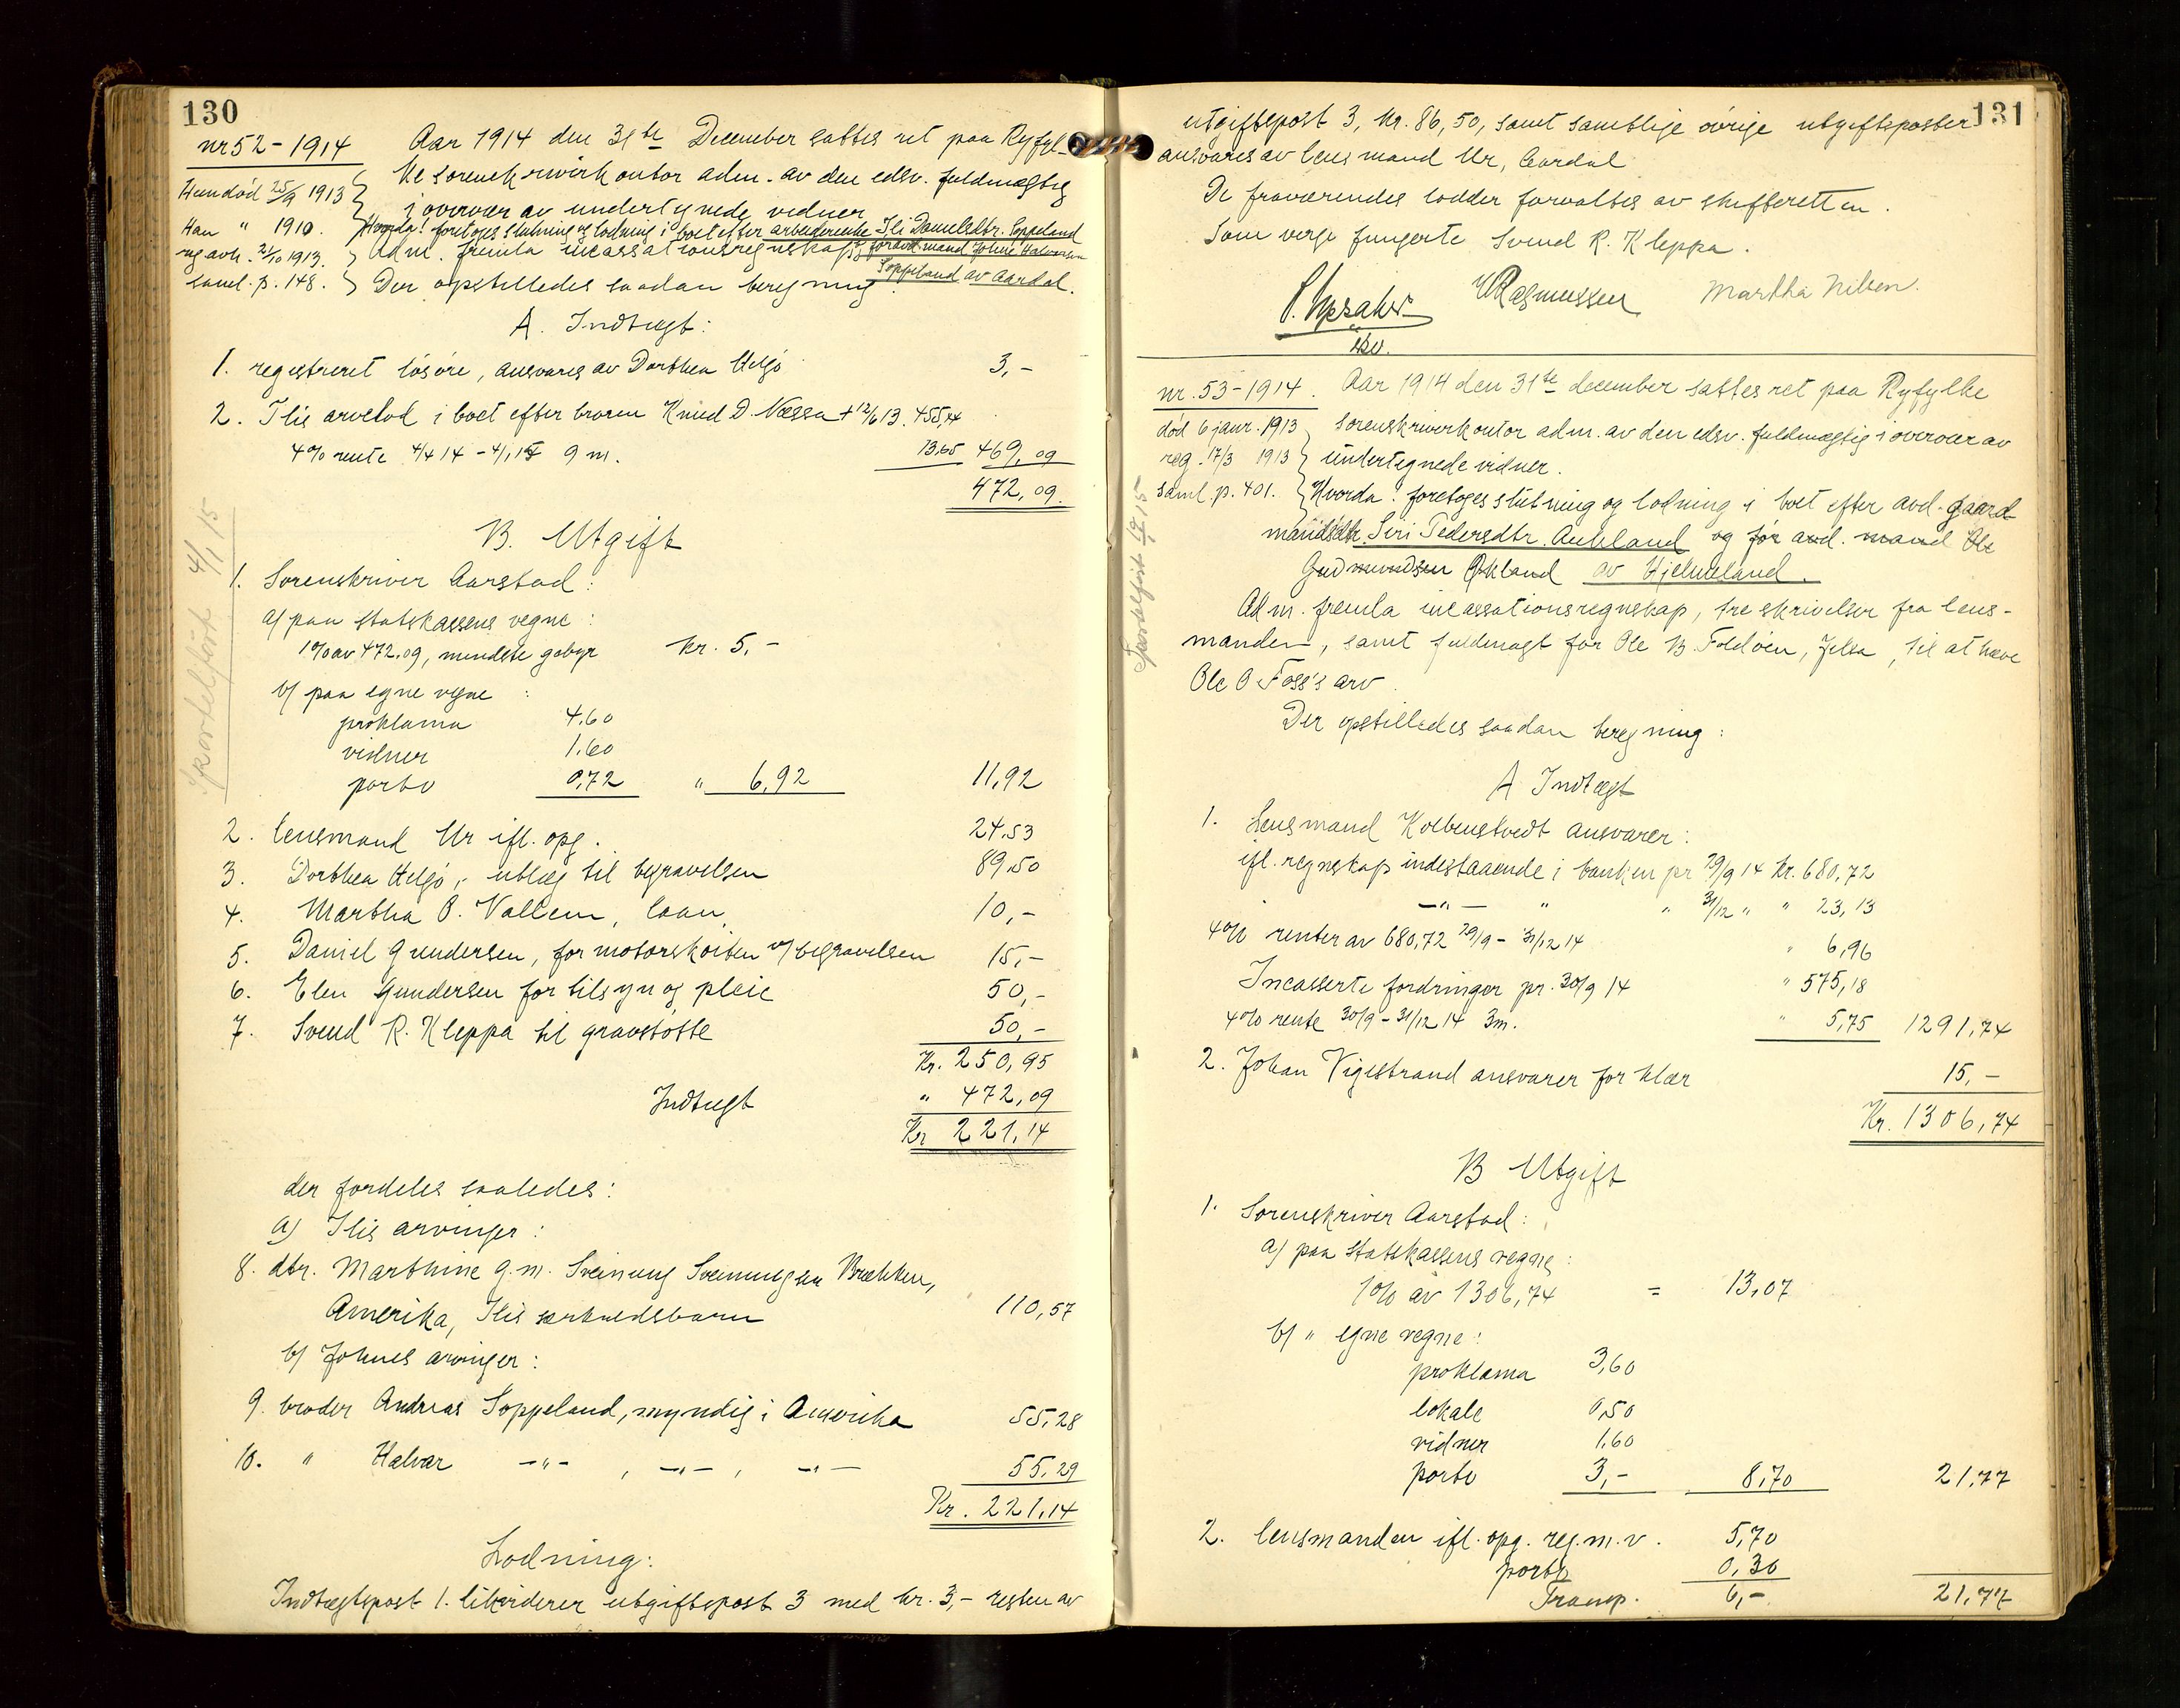 130
nr 52-1914 Aar 1914 den 31te December sattes ret paa Ryfyl-
ke sorenskriverkontor adm. av den edsv. fuldmægtig
i overvær av undertegnede vidner
Hun død 25/9 1913
Han " 1910.
reg avh. 21/10 1913.
saml. p. 148.
Hvorda: foretoges slutning og lodning i boet efter arbeiderenke Ili Danielsdtr. Soppeland
Adm. fremla incassationsregnskap og før avd. mand Johne Halvorsen
Soppeland av Aardal.
Der opstilledes saadan beregning
A. Indtægt:
1. registreret løsøre, ansvares av Dorthea Helgø 3,-
2. Ilis arvelod i boet efter broren Knud D. Næssa † 12/6 13. 455,44
4% rente 4/4 14 - 4/1 15 9 m. 13.65 469,09
472,09.
B. Utgift
1. Sorenskriver Aarstad:
a) paa statskassens vegne:
1% av 472.09, mindste gebyr kr. 5,-
b) paa egne vegne:
proklama 4.60
vidner 1.60
porto 0,72 " 6,92 11,92
2. lensmand Ur ifl. opg. 24,53
3. Dorthea Helgø, utlæg til begravelsen 89,50
4. Martha O. Vallem, laan 10,-
5. Daniel Gundersen, for motorskøiten v/ begravelsen 15,-
6. Elen Gundersen for tilsyn og pleie 50,-
7. Svend R. Kleppa til gravstøtte 50,-
Kr. 250,95
Indtægt " 472,09
Kr 221,14
der fordeles saaledes:
a) Ilis arvinger:
8. dtr. Marthine g.m. Sveinung Sveinungsen Brækken,
Amerika, Ilis særkuldsbarn 110,57
b) Johnes arvinger:
9. broder Andreas Soppeland, myndig i Amerika 55,28
10. " Halvar -"- , -"- , -"- 55,29
Kr. 221,14
Lodning:
Indtægtspost 1. likviderer utgiftspost 3 med kr. 3,- resten av
Sportelført 4/1 15
131
utgiftspost 3, kr. 86,50, samt samtlige øvrige utgiftsposter
ansvares av lensmand Ur, Aardal
De fraværendes lodder forvaltes av skifteretten.
Som verge fungerte Svend R. Kleppa.
W Rasmussen Martha Nilsen.
nr. 53-1914. Aar 1914 den 31te december sattes ret paa Ryfylke
sorenskriverkontor adm. av den edsv. fuldmægtig i overvær av
undertegnede vidner.
død 6 janr. 1913
reg. 17/3 1913
saml. p. 401.
Hvorda: foretoges slutning og lodning i boet efter avd. gaard
mandsdtr. Siri Pedersdtr. Aukland og før avd. mand Ole
Gudmundsen Økland av Hjelmeland.
Adm. fremla incassationsregnskap, tre skrivelser fra lens-
manden, samt fuldmagt for Ole B. Foldøen, Jelsa, til at hæve
Ole O Foss's arv.
Der opstilledes saadan beregning:
A Indtægt
1. Lensmand Kolbenstvedt ansvarer:
ifl. regnskap indestaaende i banken pr 29/9 14 kr. 680,72
-"- " " 31/12 " " 23,13
4% renter av 680,72 29/9 - 31/12 14 " 6,96
Incasserte fordringer pr. 30/9 14 " 575,18
4% rente 30/9 - 31/12 14 3m. " 5,75 1291,74
2. Johan Vigestrand ansvarer for klær 15,-
Kr. 1306,74
B Utgift
1. Sorenskriver Aarstad:
a) paa Statskassens vegne:
1% av 1306,74 = 13,07
b) " egne vegne:
proklama 3,60
lokale 0,50
vidner 1.60
porto 3,- 8,70 21,77
2. lensmanden ifl. opg. reg. m.v. 5,70
porto 0,30
Transp. 6,- 21,77